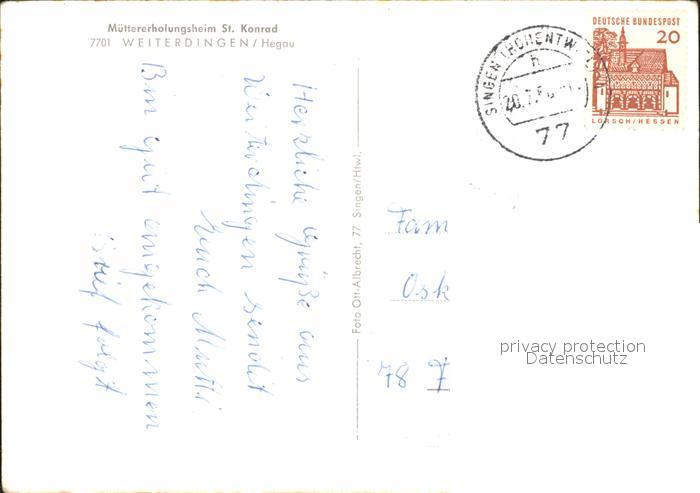 Müttererholungsheim St. Konrad
7701 WEITERDINGEN/Hegau
Herzliche Grüße aus
Weiterdingen sendet
Euch Mutti.
Bin gut angekommen
Brief folgt
Foto Ott-Albrecht, 77 Singen/Htwl.
SINGEN (HOHENTWIEL)
b
77
DEUTSCHE BUNDESPOST
20
LORSCH/HESSEN
Fam
Osk
78 F
privacy protection
Datenschutz